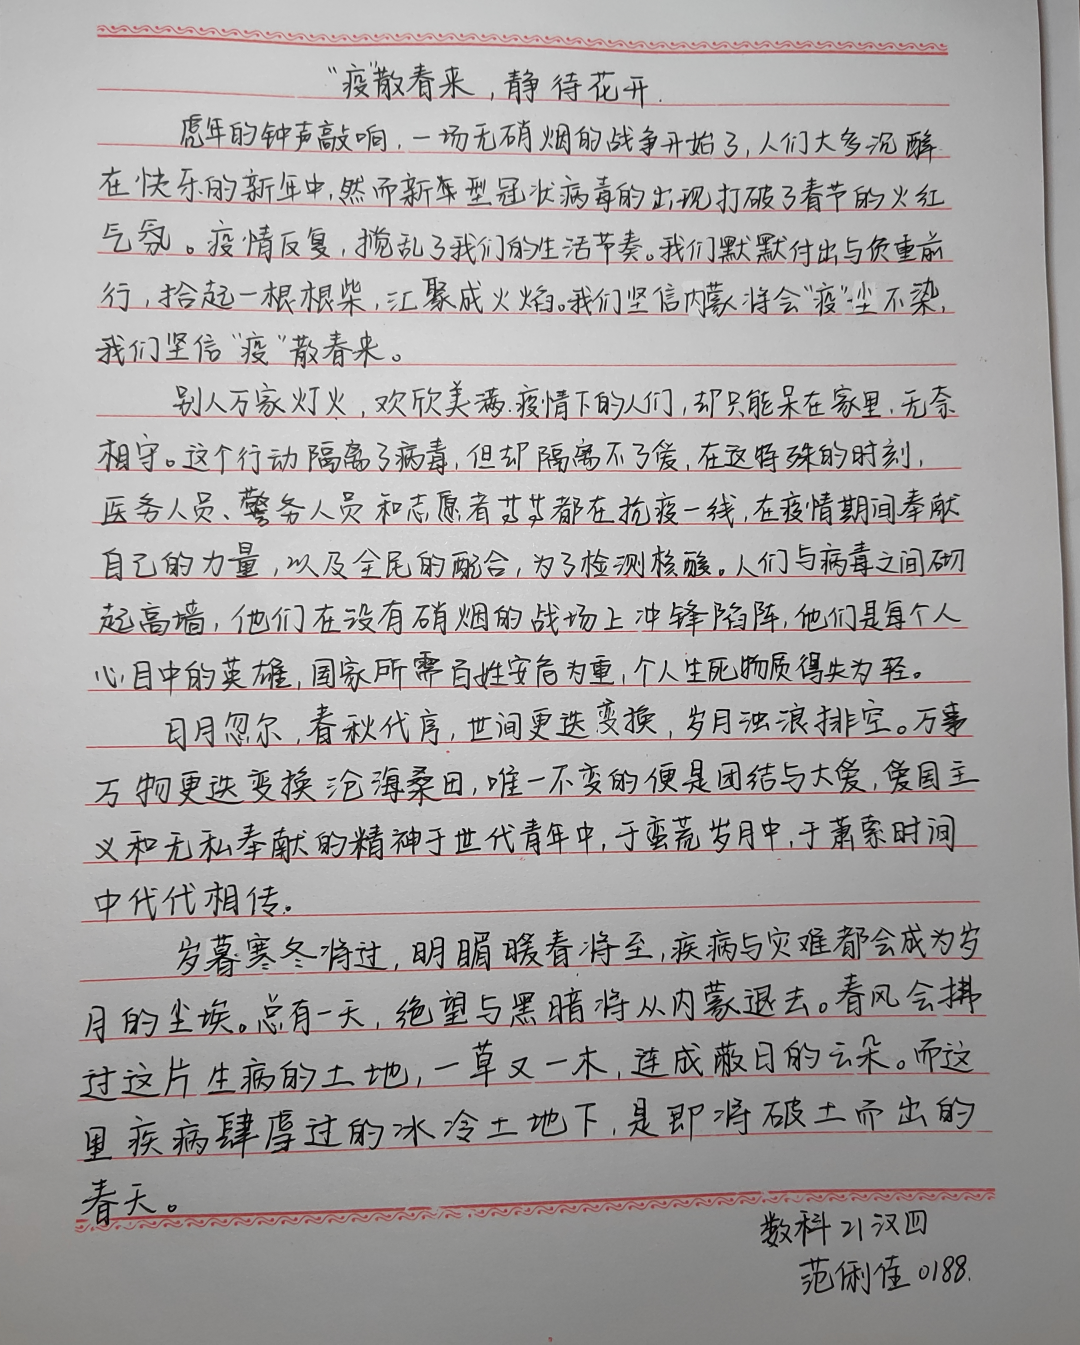 “疫”散春来，静待花开.
虎年的钟声敲响，一场无硝烟的战争开始了，人们大多沉醉
在快乐的新年中，然而新年型冠状病毒的出现打破了春节的火红
气氛。疫情反复，搅乱了我们的生活节奏。我们默默付出与负重前
行，拾起一根根柴，汇聚成火焰。我们坚信内蒙将会“疫”尘不染，
我们坚信“疫”散春来。
别人万家灯火，欢欣美满.疫情下的人们，却只能呆在家里，无奈
相守。这个行动隔离了病毒，但却隔离不了爱，在这特殊的时刻，
医务人员、警务人员和志愿者等等都在抗疫一线，在疫情期间奉献
自己的力量，以及全民的配合，为了检测核酸。人们与病毒之间砌
起高墙，他们在没有硝烟的战场上冲锋陷阵，他们是每个人
心目中的英雄，国家所需百姓安危为重，个人生死物质得失为轻。
日月忽尔，春秋代序，世间更迭变换，岁月浊浪排空。万事
万物更迭变换沧海桑田，唯一不变的便是团结与大爱，爱国主
义和无私奉献的精神于世代青年中，于蛮荒岁月中，于萧索时间
中代代相传。
岁暮寒冬将过，明媚暖春将至，疾病与灾难都会成为岁
月的尘埃。总有一天，绝望与黑暗将从内蒙退去。春风会拂
过这片生病的土地，一草又一木，连成蔽日的云朵。而这
里疾病肆虐过的冰冷土地下，是即将破土而出的
春天。
数科21汉四
范俐佳0188.